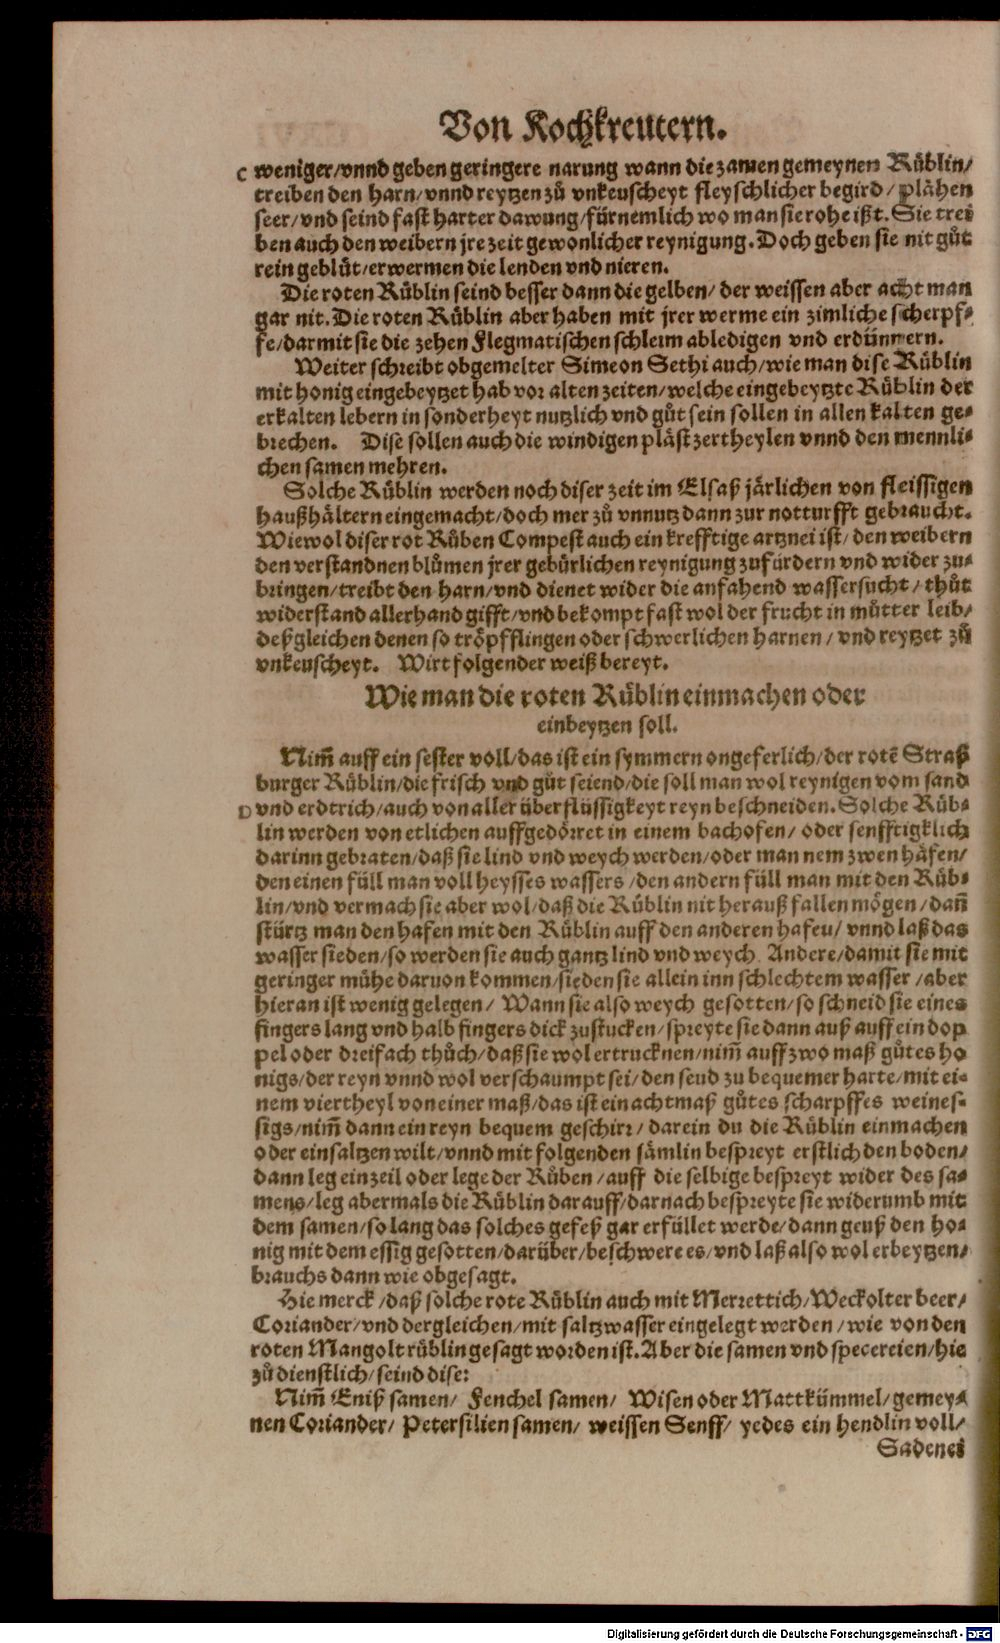 Von Kochkreutern.
C weniger/vnnd geben geringere narung wann die zamen gemeynen Rüblin/
treiben den harn/vnnd reytzen zů vnkeuscheyt fleyschlicher begird/plähen
seer/vnd seind fast harter dawung/fürnemlich wo man sie rohe ißt. Sie trei
ben auch den weibern jre zeit gewonlicher reynigung. Doch geben sie nit gůt
rein geblüt/erwermen die lenden vnd nieren.
Die roten Rüblin seind besser dann die gelben/der weissen aber acht man
gar nit. Die roten Rüblin aber haben mit jrer werme ein zimliche scherpf⸗
fe/darmit sie die zehen Flegmatischen schleim abledigen vnd erdünnern.
Weiter schreibt obgemelter Simeon Sethi auch/wie man dise Rüblin
mit honig eingebeytzet hab vor alten zeiten/welche eingebeytzte Rüblin der
erkalten lebern in sonderheyt nutzlich vnd gůt sein sollen in allen kalten ge⸗
brechen. Dise sollen auch die windigen pläst zertheylen vnnd den mennli⸗
chen samen mehren.
Solche Rüblin werden noch diser zeit im Elsaß järlichen von fleissigen
haußhältern eingemacht/doch mer zů vnnutz dann zur notturfft gebraucht.
Wiewol diser rot Rüben Compest auch ein krefftige artznei ist/den weibern
den verstandnen blůmen jrer gebürlichen reynigung zufürdern vnd wider zu⸗
bringen/treibt den harn/vnd dienet wider die anfahend wassersucht/thůt
widerstand allerhand gifft/vnd bekompt fast wol der frucht in můtter leib/
deßgleichen denen so tröpfflingen oder schwerlichen harnen/vnd reytzet zů
vnkeuscheyt. Wirt folgender weiß bereyt.
Wie man die roten Rüblin einmachen oder
einbeytzen soll.
Nim̄ auff ein sester voll/das ist ein symmern ongeferlich/der rotē Straß
burger Rüblin/die frisch vnd gůt seiend/die soll man wol reynigen vom sand
D vnd erdtrich/auch von aller überflüssigkeyt reyn beschneiden. Solche Rüb⸗
lin werden von etlichen auffgedörret in einem bachofen/oder senfftigklich
darinn gebraten/daß sie lind vnd weych werden/oder man nem zwen häfen/
den einen füll man voll heysses wassers/den andern füll man mit den Rüb⸗
lin/vnd vermach sie aber wol/daß die Rüblin nit herauß fallen mögen/dañ
stürtz man den hafen mit den Rüblin auff den anderen hafeu/vnnd laß das
wasser sieden/so werden sie auch gantz lind vnd weych. Andere/damit sie mit
geringer mühe daruon kommen/sieden sie allein inn schlechtem wasser/aber
hieran ist wenig gelegen/Wann sie also weych gesotten/so schneid sie eines
fingers lang vnd halb fingers dick zustucken/spreyte sie dann auß auff ein dop
pel oder dreifach thůch/daß sie wol ertrucknen/nim̄ auff zwo maß gůtes ho
nigs/der reyn vnnd wol verschaumpt sei/den seud zu bequemer harte/mit ei⸗
nem viertheyl von einer maß/das ist ein achtmaß gůtes scharpffes weines⸗
sigs/nim̄ dann ein reyn bequem geschirr/darein du die Rüblin einmachen
oder einsaltzen wilt/vnnd mit folgenden sämlin bespreyt erstlich den boden/
dann leg ein zeil oder lege der Rüben/auff die selbige bespreyt wider des sa⸗
mens/leg abermals die Rüblin darauff/darnach bespreyte sie widerumb mit
dem samen/so lang das solches gefeß gar erfüllet werde/dann geuß den ho⸗
nig mit dem essig gesotten/darüber/beschwere es/vnd laß also wol erbeytzen/
brauchs dann wie obgesagt.
Hie merck/daß solche rote Rüblin auch mit Merrettich/Weckolter beer/
Coriander/vnd dergleichen/mit saltzwasser eingelegt werden/wie von den
roten Mangolt rüblin gesagt worden ist. Aber die samen vnd specereien/hie
zů dienstlich/seind dise:
Nim̄ Eniß samen/Fenchel samen/Wisen oder Mattkümmel/gemey⸗
nen Coriander/Petersilien samen/weissen Senff/yedes ein hendlin voll/
Sadenei
Digitalisierung gefördert durch die Deutsche Forschungsgemeinschaft - DFG